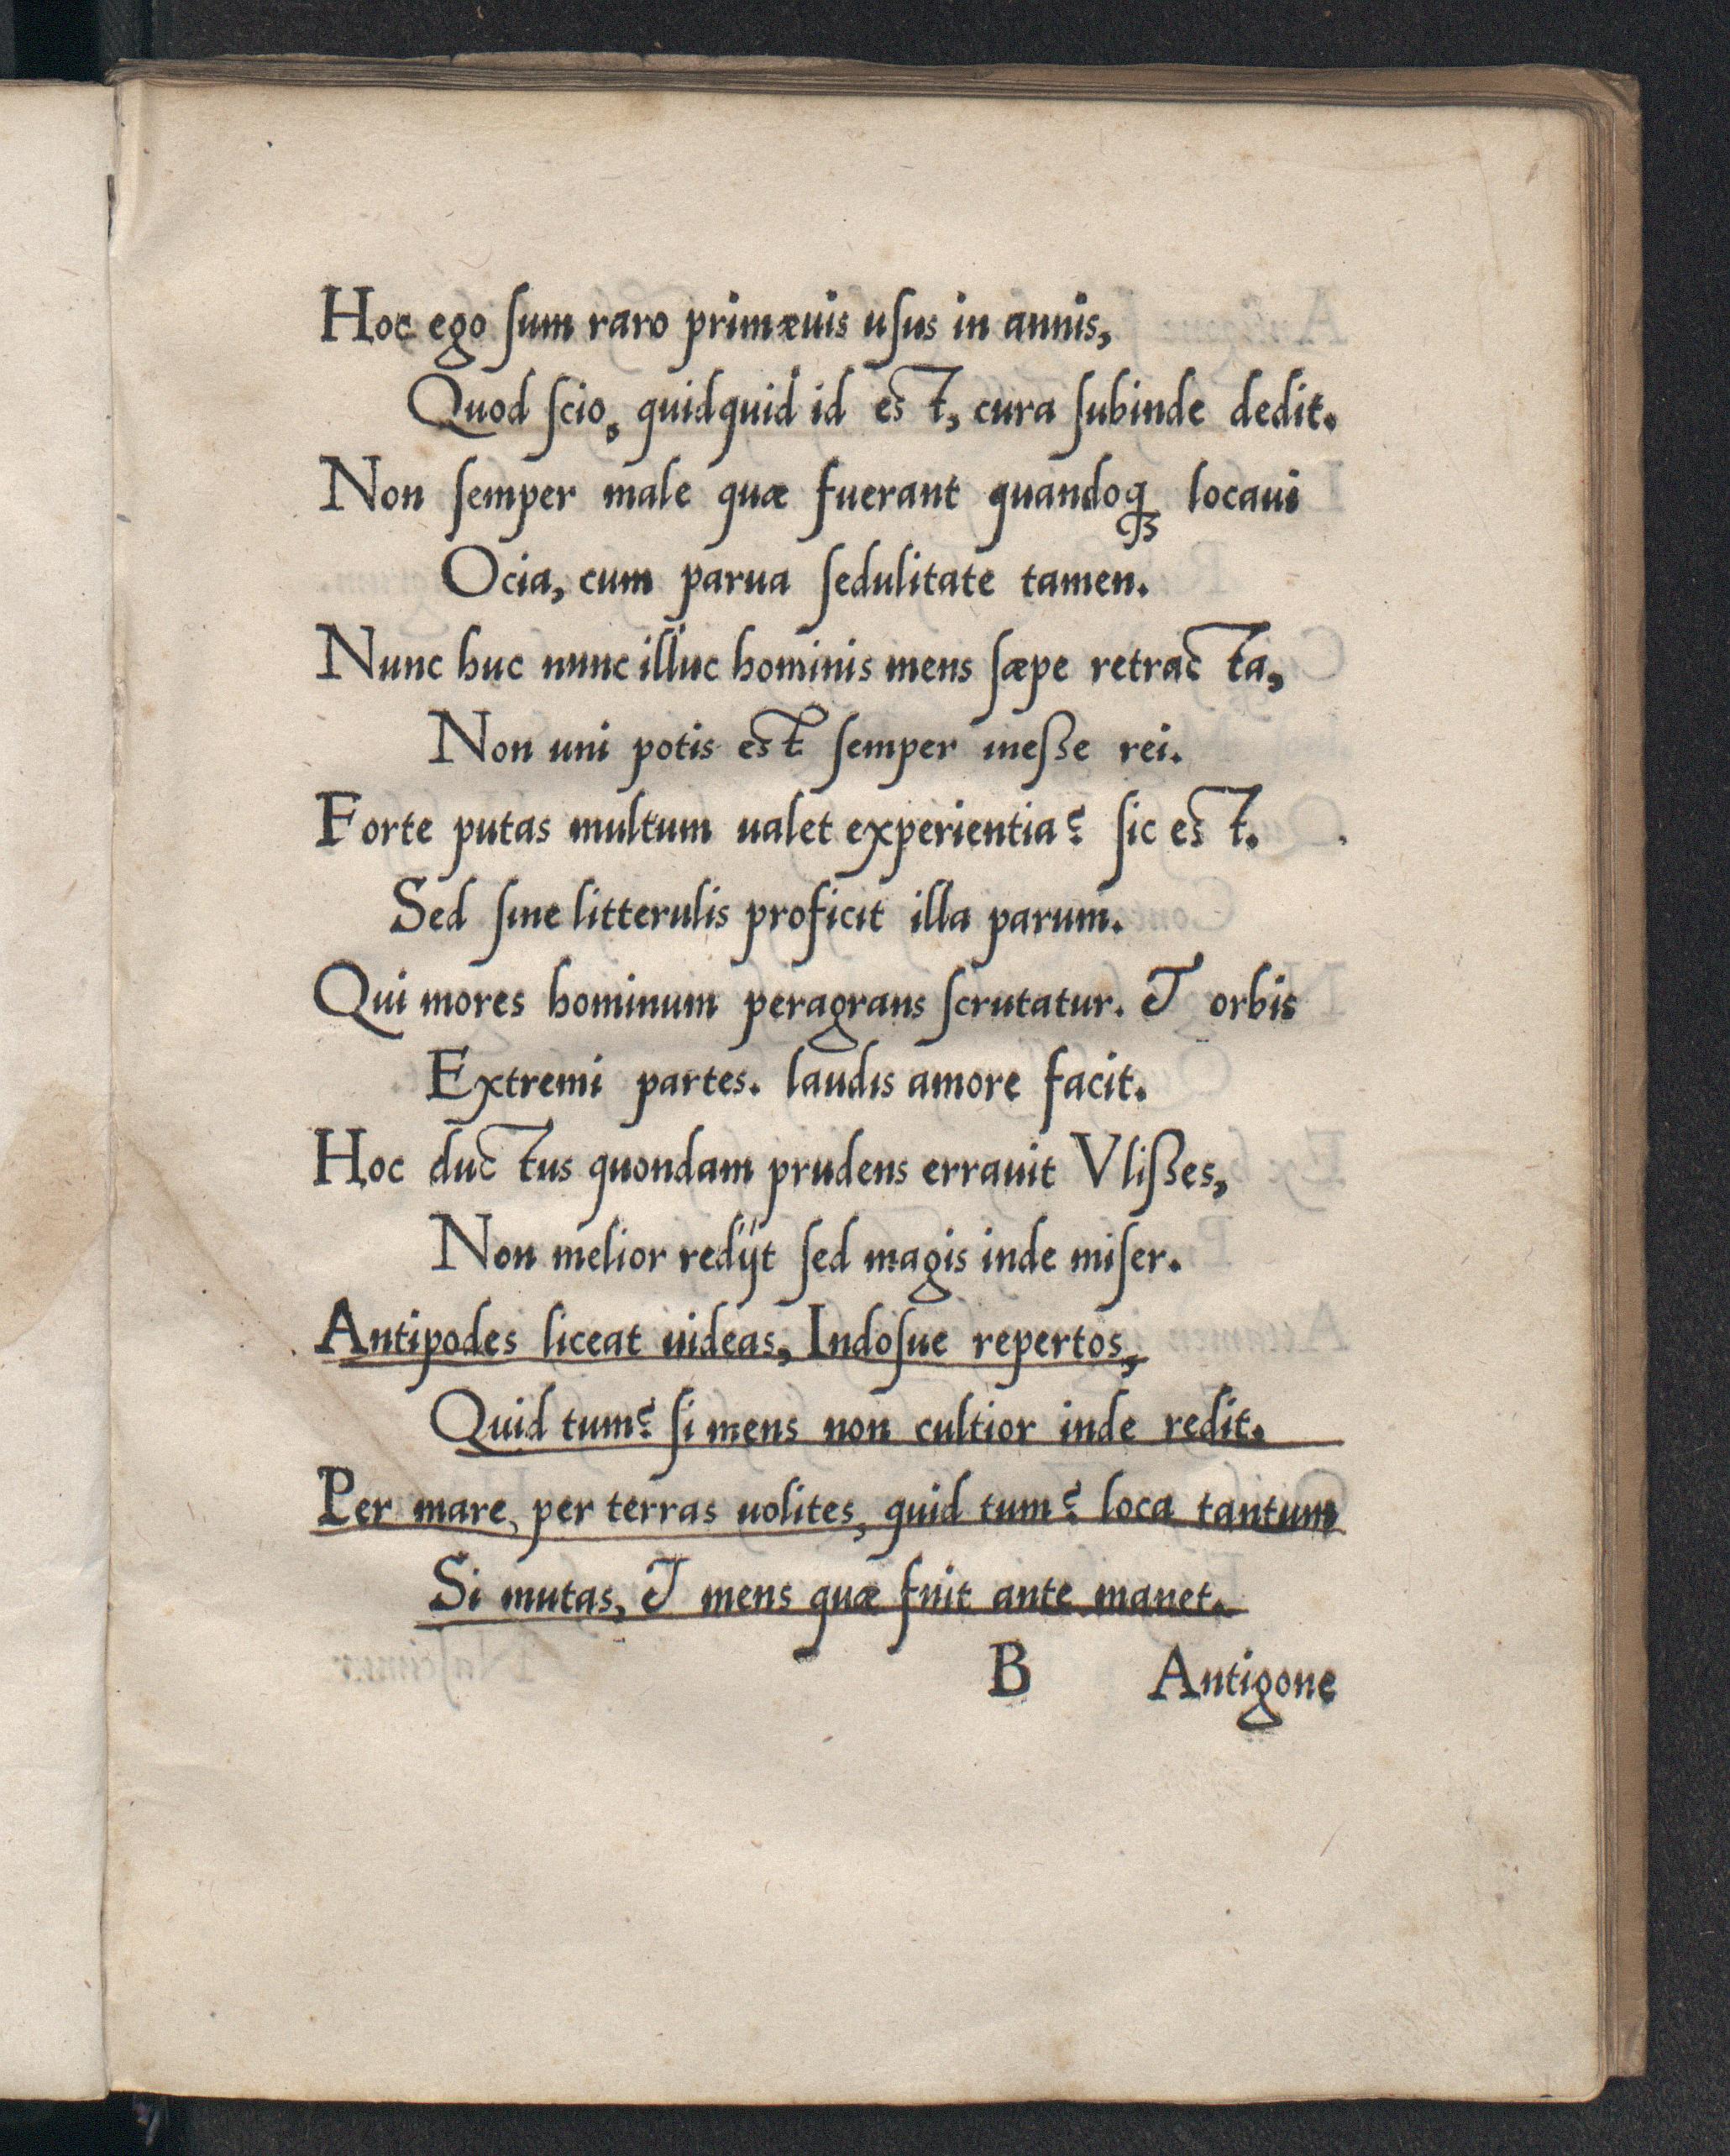 Hoc ego ſum raro primæuis uſus in annis,
Quod ſcio, quidquid id est, cura ſubinde dedit.
Non ſemper male quæ fuerant quandoqȝ locaui
Ocia, cum parua ſedulitate tamen.
Nunc huc nunc illuc hominis mens ſæpe retracta,
Non uni potis est ſemper ineſſe rei.
Forte putas multum ualet experientia? ſic est.
Sed ſine litterulis proficit illa parum.
Qui mores hominum peragrans ſcrutatur. & orbis
Extremi partes. laudis amore facit.
Hoc ductus quondam prudens errauit Vliſſes,
Non melior redijt ſed magis inde miſer.
Antipodes liceat uideas, Indoſue repertos,
Quid tum? ſi mens non cultior inde redit.
Per mare, per terras uolites, quid tum? loca tantum
Si mutas, & mens quæ fuit ante manet.
B Antigone